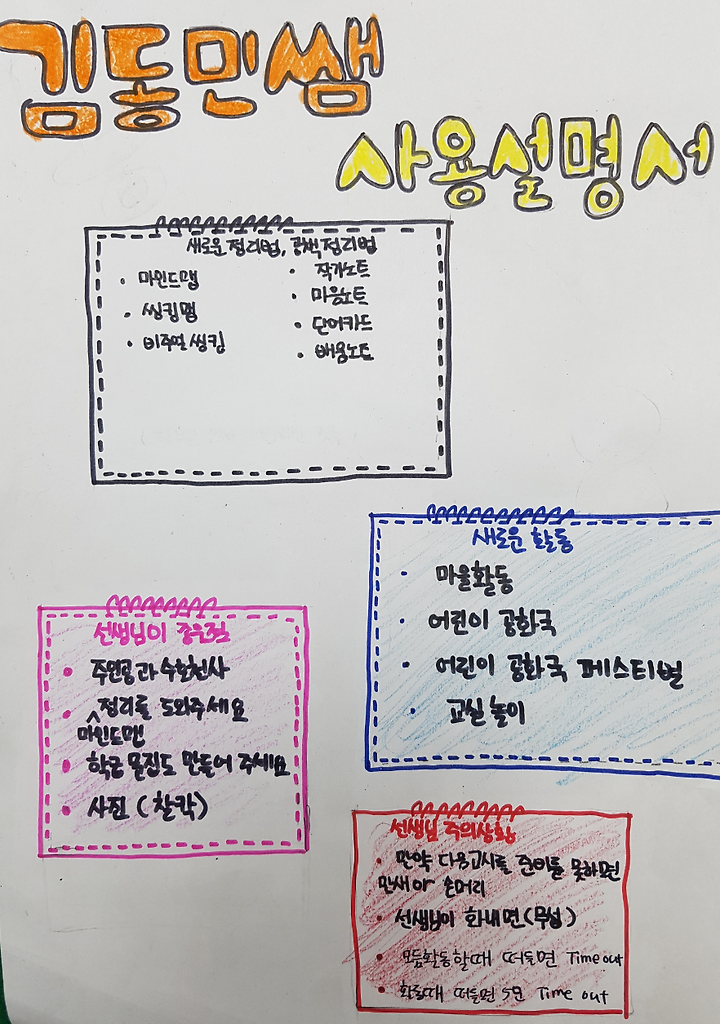 김동민쌤
사용설명서
새로운 정리법, 공책정리법
• 마인드맵
• 씽킹맵
• 비주얼씽킹
• 작가노트
• 마음노트
• 단어카드
• 배움노트
새로운 활동
• 마을활동
• 어린이 공화국
• 어린이 공화국 페스티벌
• 교실놀이
선생님이 좋은점
• 주인공과 수호천사
• 정리를 도와주세요
마인드맨
• 학급 문집도 만들어 주세요
• 사진 (찰칵)
선생님 주의상황
• 만약 다음교시를 준비를 못하면
만세 or 손머리
• 선생님이 화내면 (무섭)
• 모둠활동할때 떠들면 Time out
• 떠들면 5분 Time out